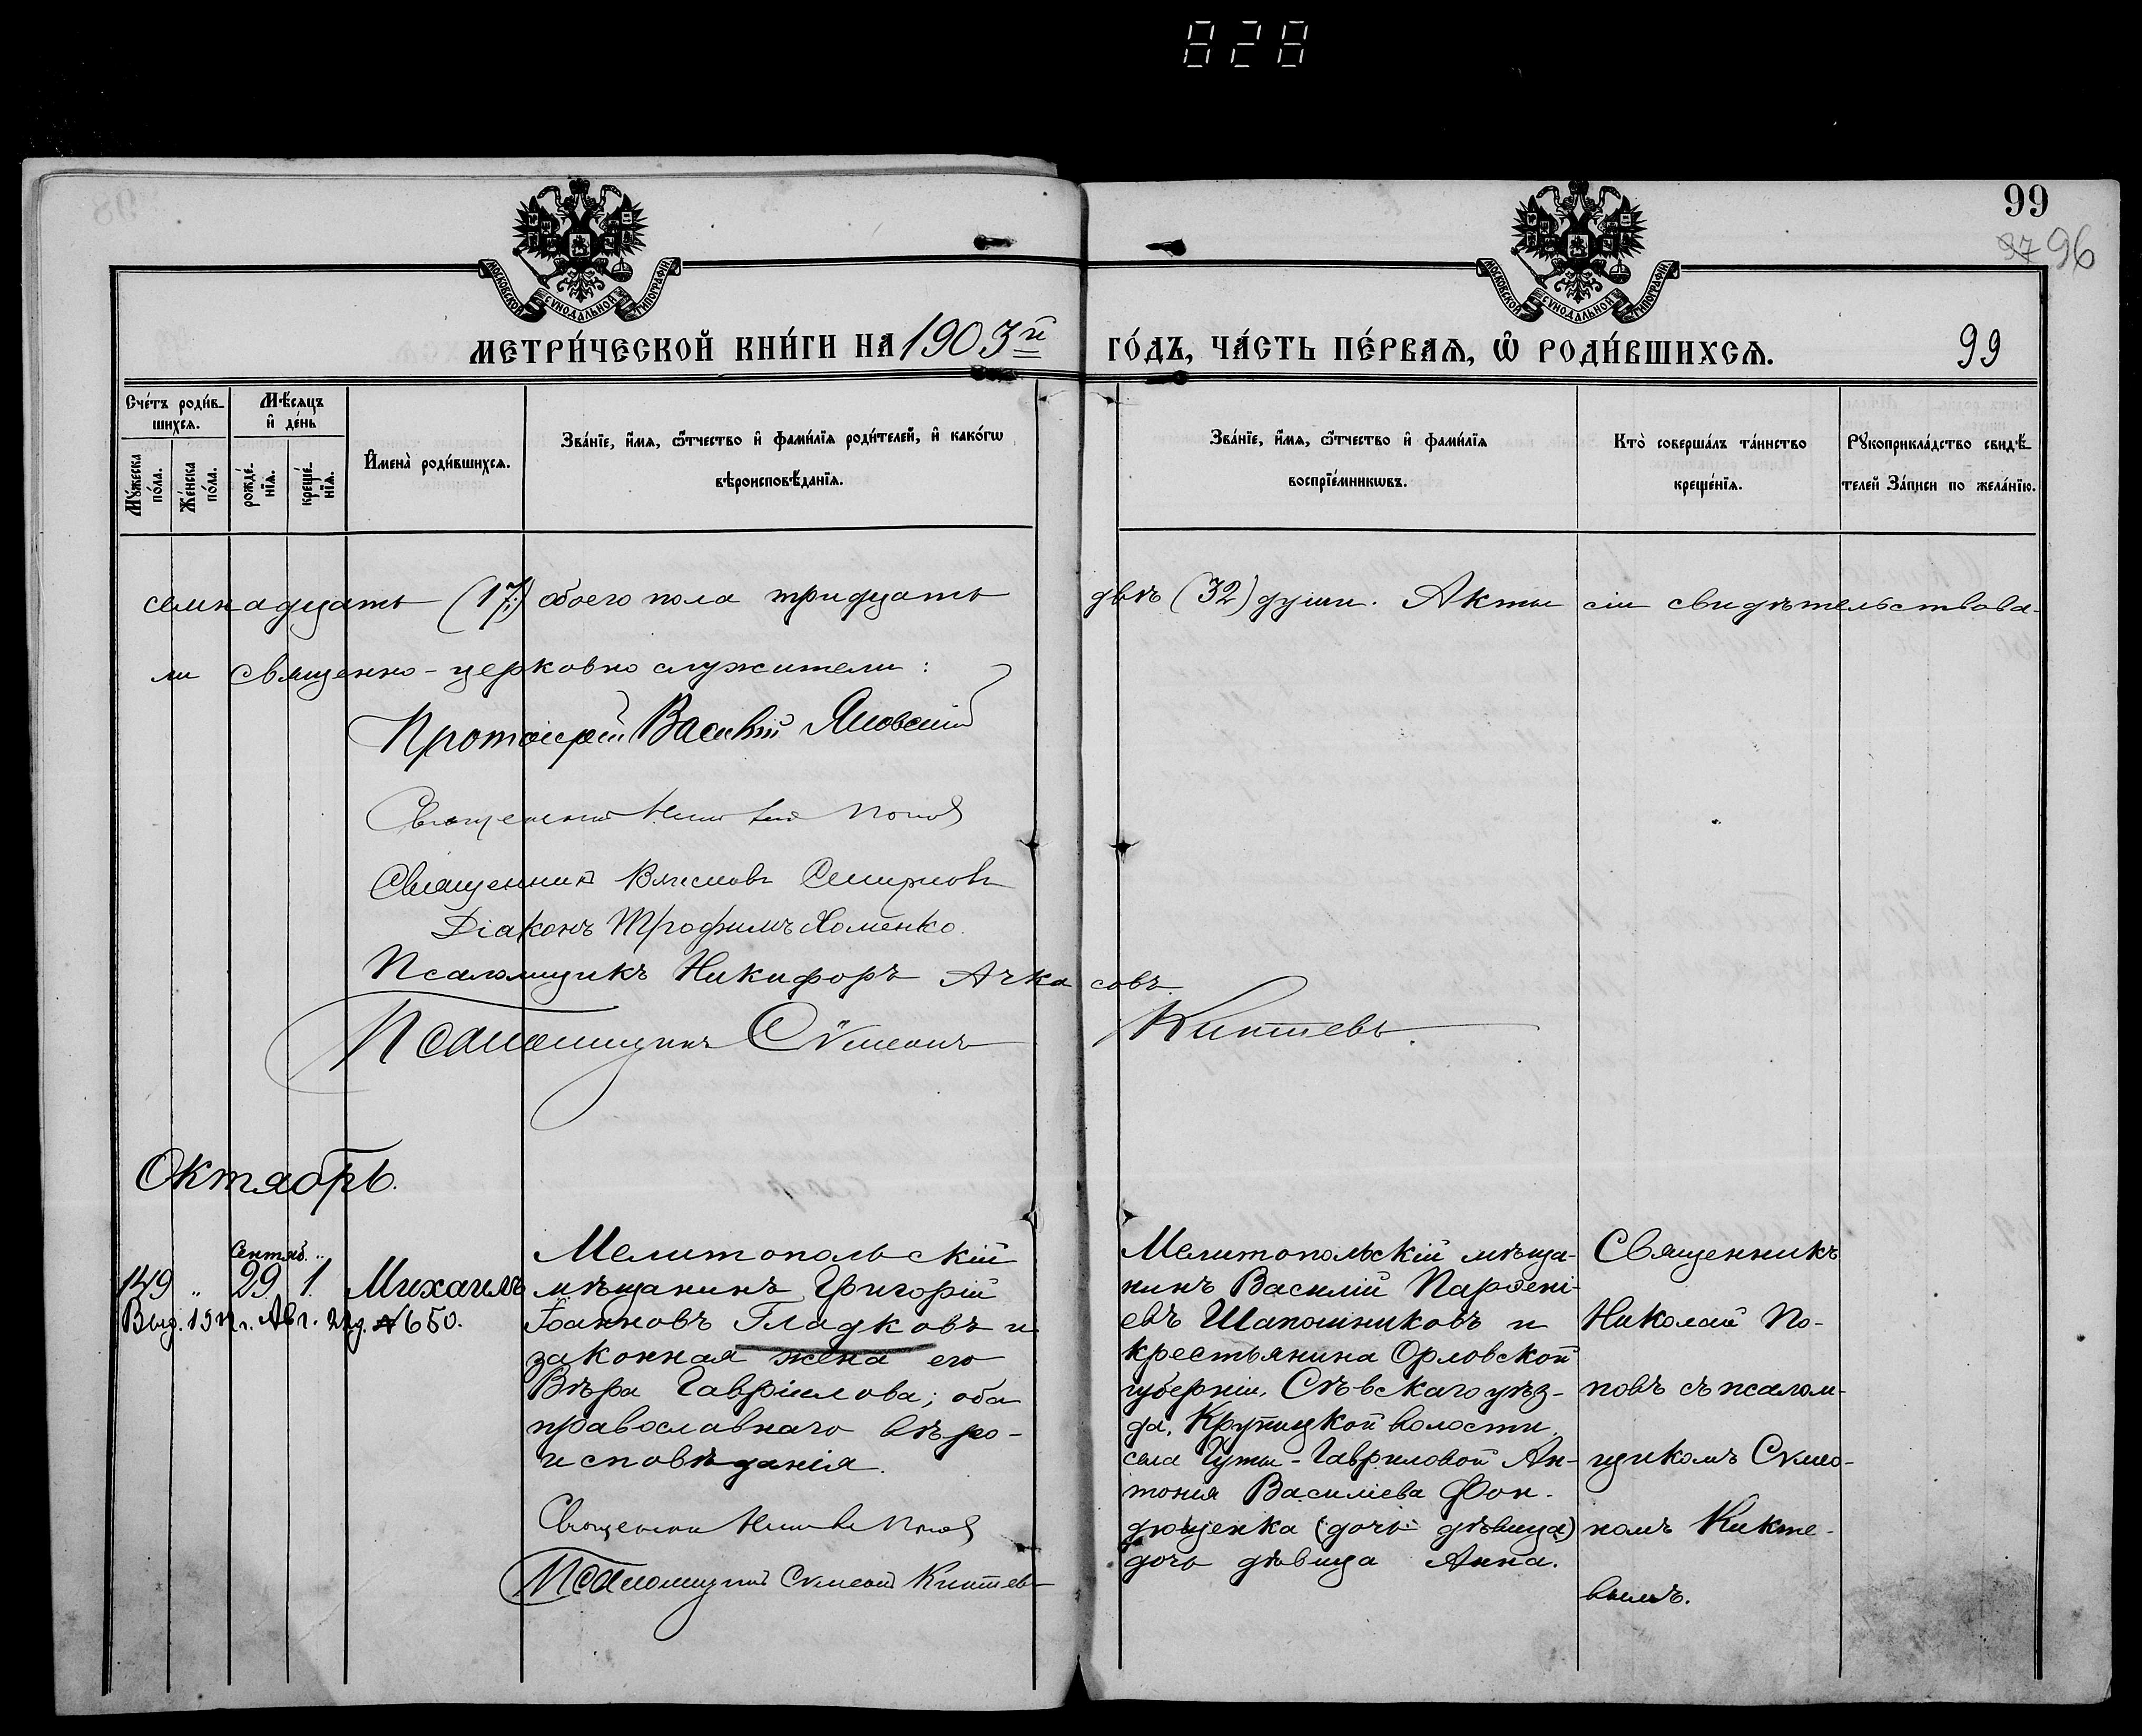 828
99
97 96
МОСКОВСКОЙ СѴНОДАЛЬНОЙ ТИПОГРАФІИ
МОСКОВСКОЙ СѴНОДАЛЬНОЙ ТИПОГРАФІИ
МЕТРИ́ЧЕСКОЙ КНИ́ГИ НА 1903й ГО́ДЪ, ЧА́СТЬ ПЕ́РВАѦ, Ѡ҆ РОДИ́ВШИХСѦ.
99
Сче́тъ роди́в-
шихсѧ.
Мꙋ́жеска по́ла.
Же́нска по́ла.
Мѣ́сѧцъ
и҆ де́нь
рожде́-
нїѧ.
креще́-
нїѧ.
И҆мена̀ роди́вшихсѧ.
Зва́нїе, и҆́мѧ, ѻ҆́тчество и҆ фами́лїѧ роди́телей, и҆ како́гѡ
вѣроисповѣ́данїѧ.
Зва́нїе, и҆́мѧ, ѻ҆́тчество и҆ фами́лїѧ
воспрїе́мникѡвъ.
Кто̀ соверша́лъ та́инство
креще́нїѧ.
Рꙋкоприкла́дство свидѣ́-
телей За́писи по жела́нїю.
семнадцать (17) обоего пола тридцать двѣ (32) души. Акты сіи свидѣтельствова-
ли священно-церковно служители:
Протоіерей Василій Яновскій
Священникъ Николай Поповъ
Священникъ Вячеславъ Смирновъ
Діаконъ Трофимъ Хоменко.
Псаломщикъ Никифоръ Ачкасовъ.
Псаломщикъ Сѵмеонъ Киктевъ.
Октябрь.
Сентяб.
149 " 29 1. Михаилъ
Выд. Авг. № 650.
Мелитопольскій
мѣщанинъ Григорій
Іоанновъ Гладковъ и
законная жена его
Вѣра Гавріилова; оба
православнаго вѣро-
исповѣданія.
Священникъ Николай Поповъ
Псаломщикъ Сѵмеонъ Киктевъ
Мелитопольскій мѣща-
нинъ Василій Парѳені-
евъ Шапошниковъ и
крестьянина Орловской
губерніи, Сѣвскаго уѣз-
да, Крупицкой волости
села Гуты-Гавриловой Ан-
тонія Василіева Фон-
дющенка (дочь дѣвица)
дочь дѣвица Анна.
Священникъ
Николай По-
повъ съ псалом-
щикомъ Сѵмео-
номъ Кикте-
вымъ.